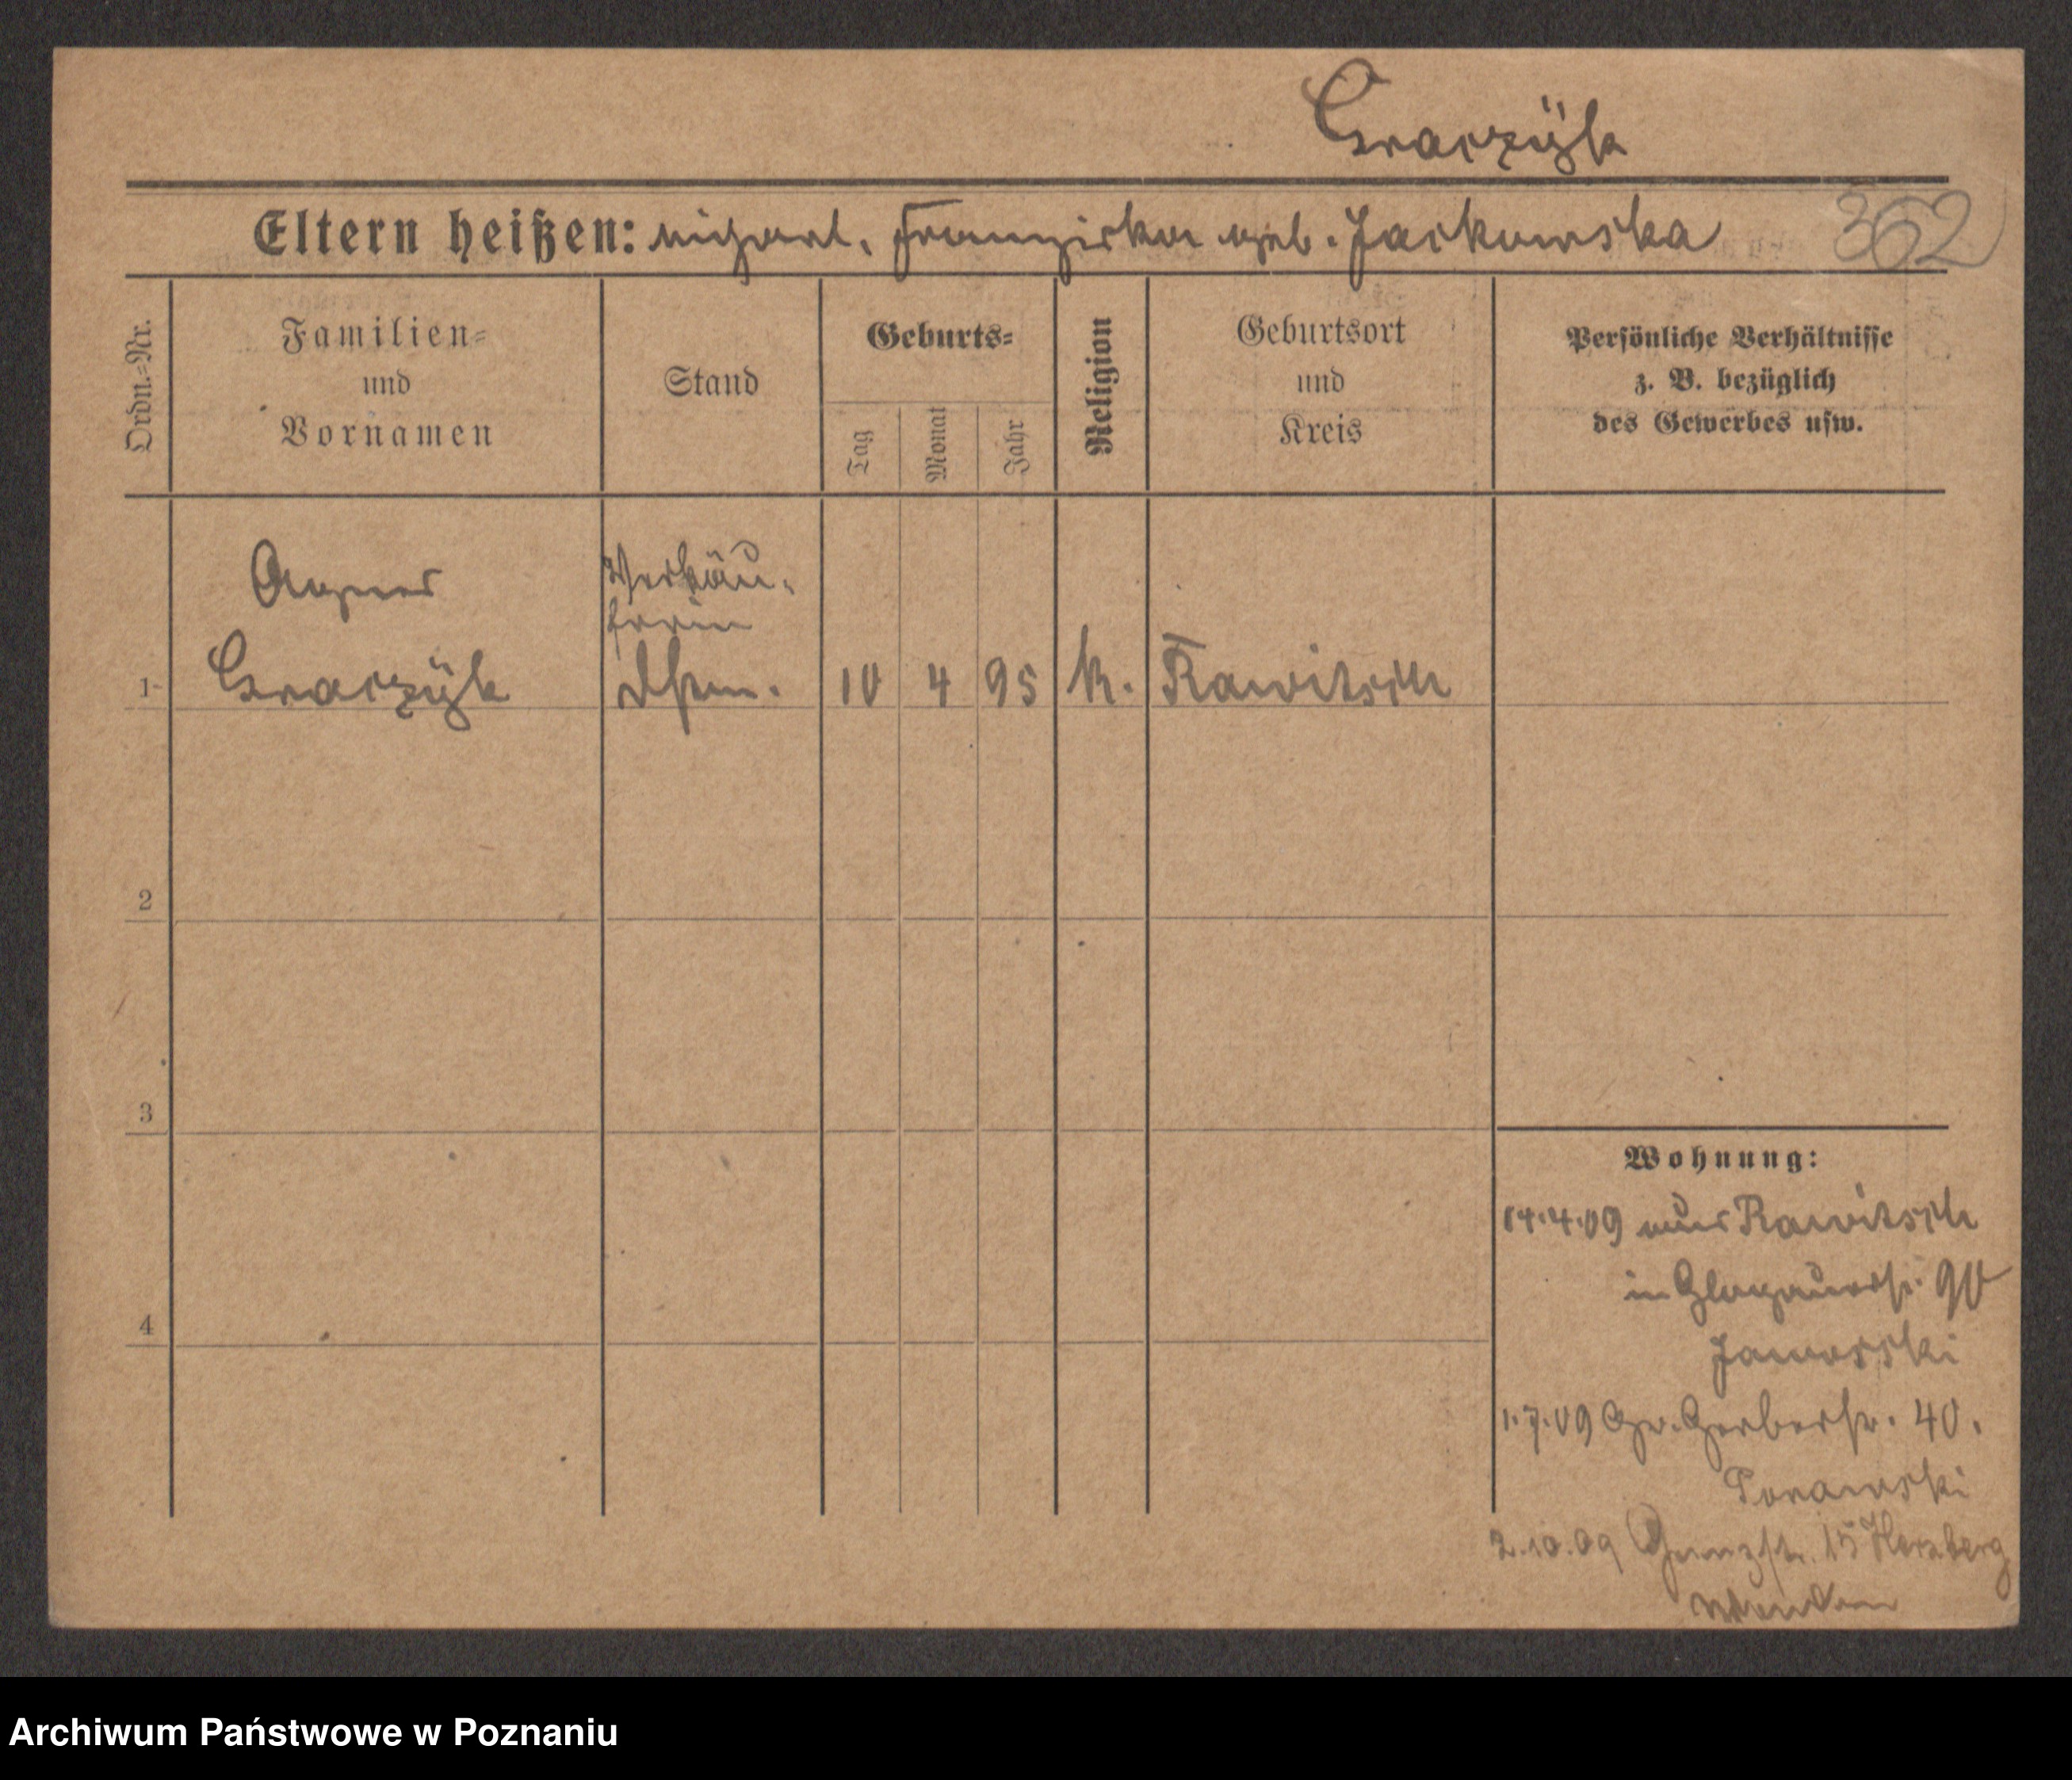 Graczÿk
Eltern heißen: Michael, Franziska geb. Jackowska 362
Ordn.=Nr.
Familien=
und
Vornamen
Stand
Geburts=
Tag
Monat
Jahr
Religion
Geburtsort
und
Kreis
Persönliche Verhältnisse
z. B. bezüglich
des Gewerbes usw.
Agnes
Verkäu-
ferin
1 Graczÿk 10 4 95 k. Rawitsch
2
3
4
Wohnung:
14.4.09 aus Rawitsch
in Glogauerstr. 90
Jaworski
1.7.09 Gr. Gerberstr. 40.
2.10.09 15 Herzberg
Archiwum Państwowe w Poznaniu